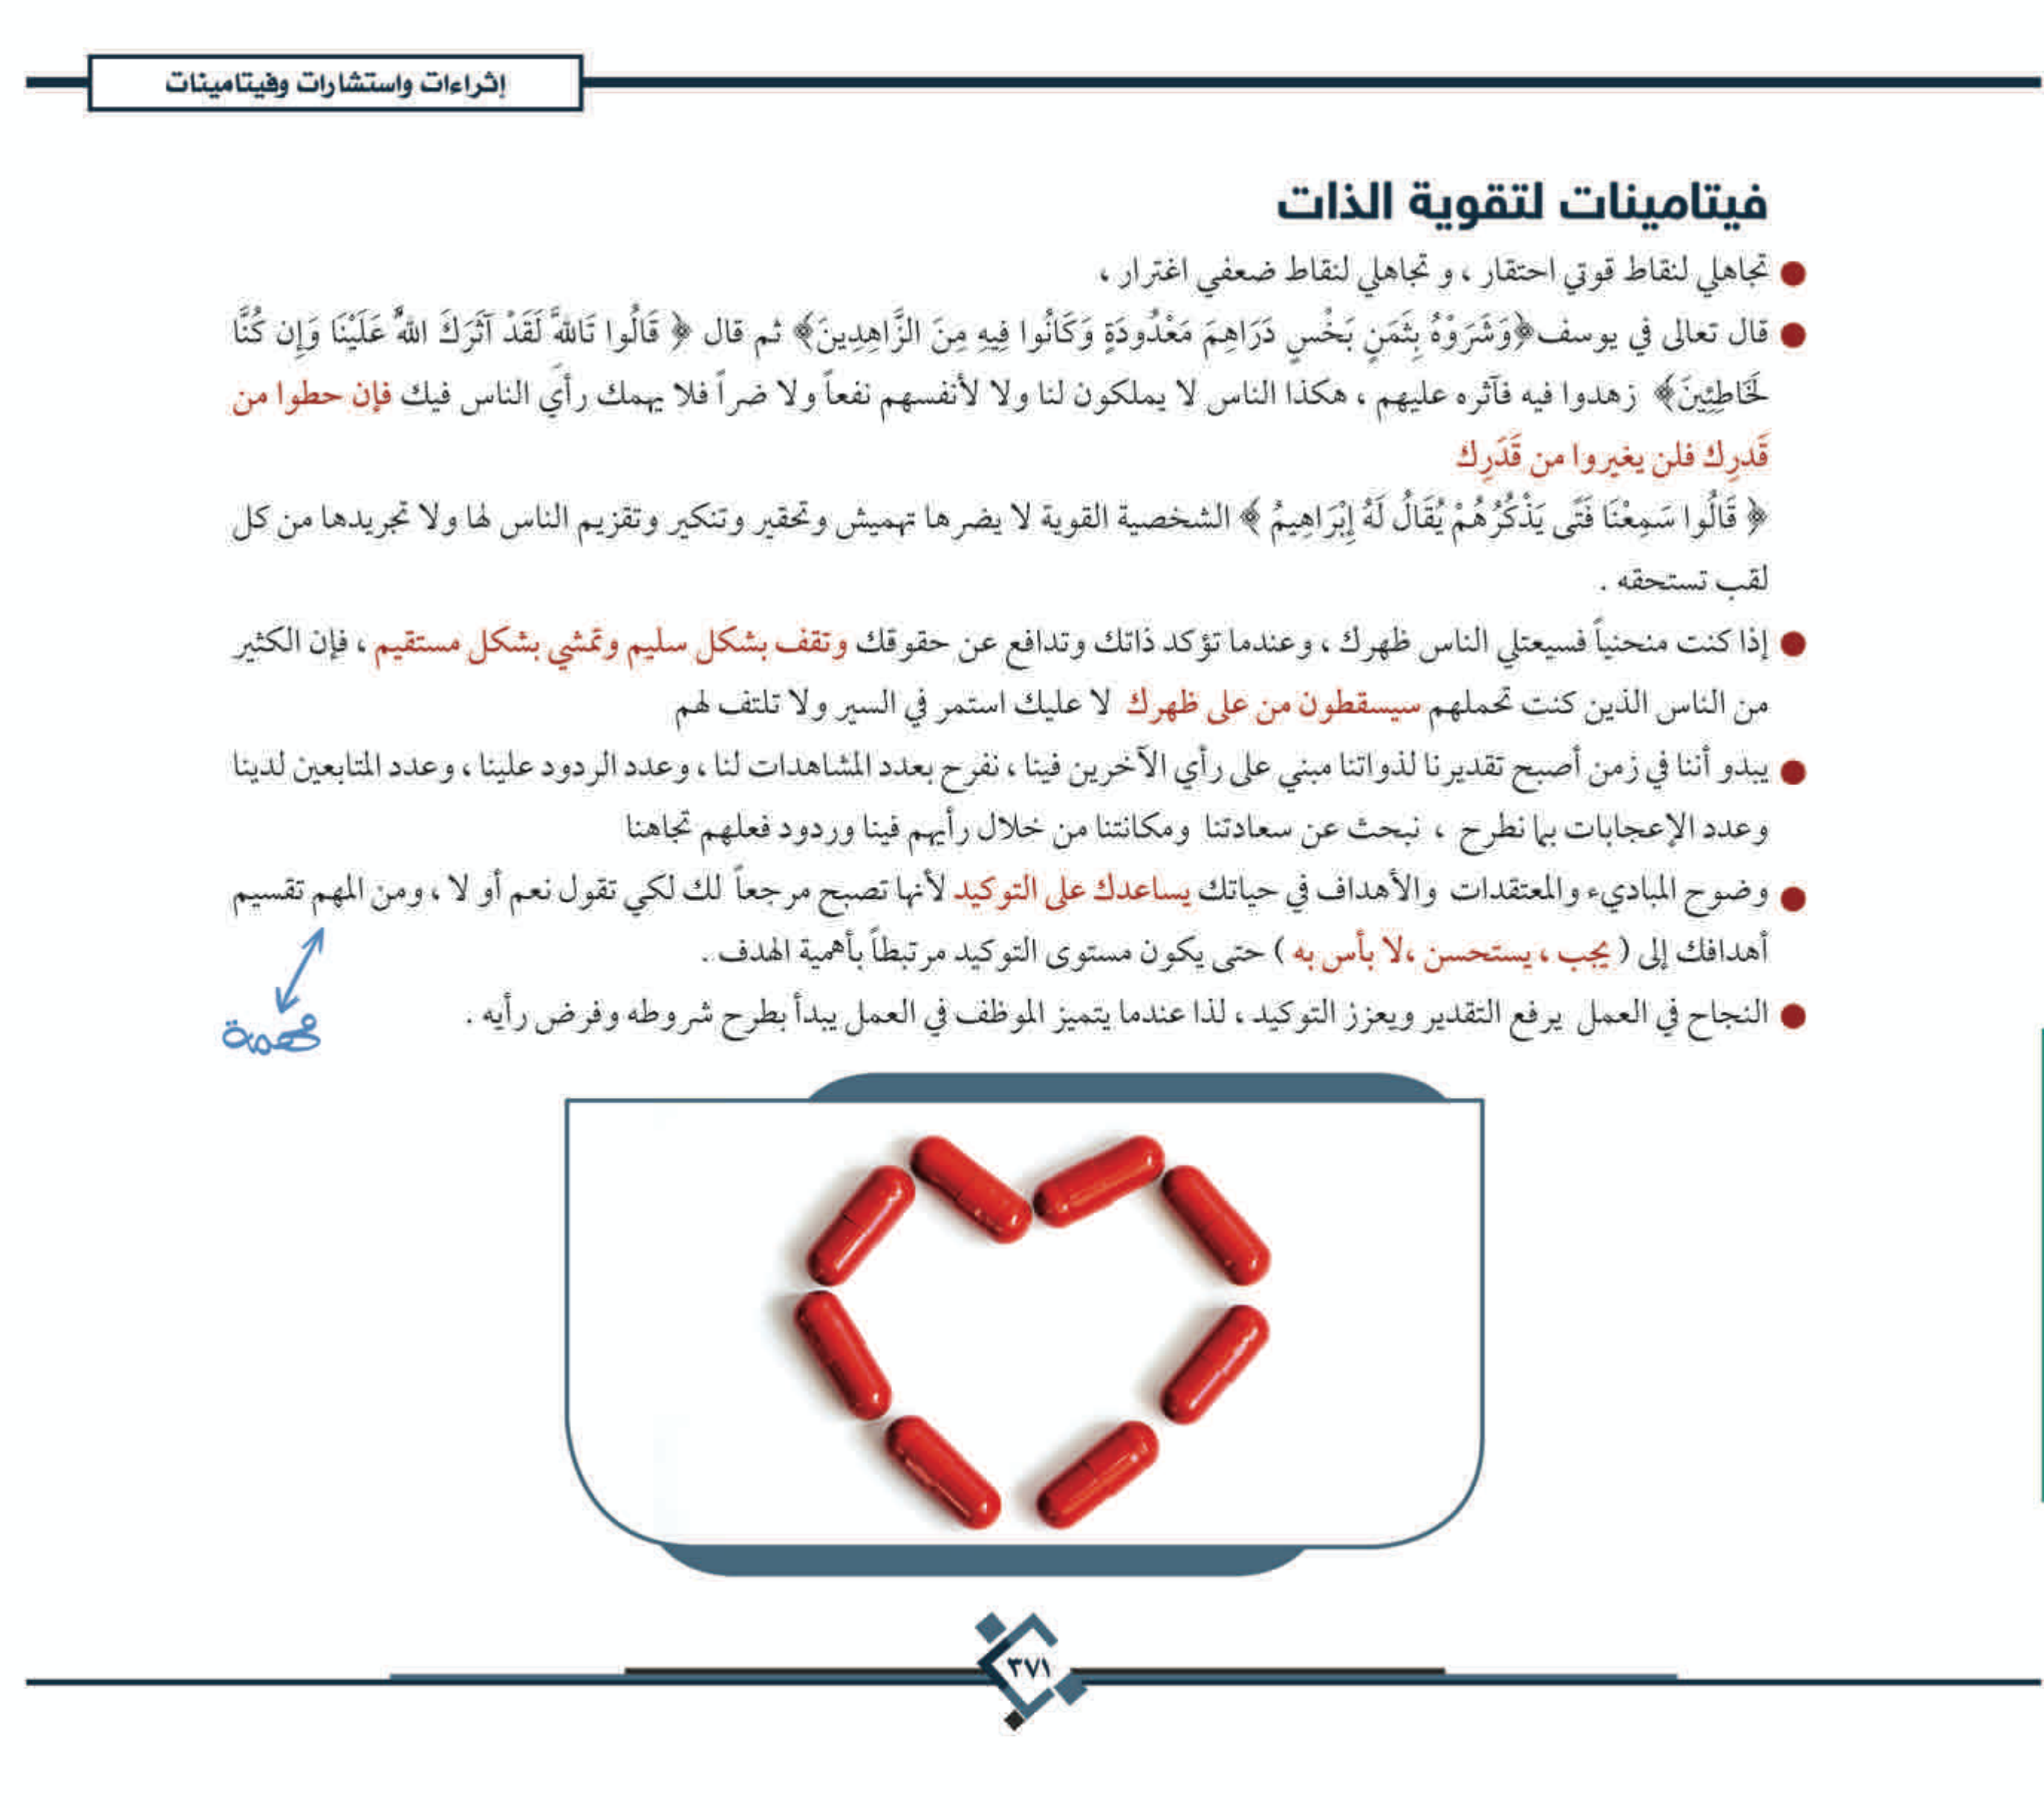 إثراءات واستشارات وفيتامينات
فيتامينات لتقوية الذات
تجاهلي لنقاط قوتي احتقار ، و تجاهلي لنقاط ضعفي اغترار ،
قال تعالى في يوسف ﴿وَشَرَوْهُ بِثَمَنٍ بَخْسٍ دَرَاهِمَ مَعْدُودَةٍ وَكَانُوا فِيهِ مِنَ الزَّاهِدِينَ﴾ ثم قال ﴿ قَالُوا تَاللهِ لَقَدْ آثَرَكَ اللهُ عَلَيْنَا وَإِن كُنَّا
لَخَاطِئِينَ﴾ زهدوا فيه فآثره عليهم ، هكذا الناس لا يملكون لنا ولا لأنفسهم نفعاً ولا ضراً فلا يهمك رأيَ الناس فيك فإن حطوا من
قَدرِك فلن يغيروا من قَدَرِك
﴿ قَالُوا سَمِعْنَا فَتًى يَذْكُرُهُمْ يُقَالُ لَهُ إِبْرَاهِيمُ ﴾ الشخصية القوية لا يضرها تهميش وتحقير وتنكير وتقزيم الناس لها ولا تجريدها من كل
لقب تستحقه .
إذا كنت منحنياً فسيعتلي الناس ظهرك ، وعندما تؤكد ذاتك وتدافع عن حقوقك وتقف بشكل سليم وتمشي بشكل مستقيم ، فإن الكثير
من الناس الذين كنت تحملهم سيسقطون من على ظهرك لا عليك استمر في السير ولا تلتف لهم
يبدو أننا في زمن أصبح تقديرنا لذواتنا مبني على رأي الآخرين فينا ، نفرح بعدد المشاهدات لنا ، وعدد الردود علينا ، وعدد المتابعين لدينا
وعدد الإعجابات بما نطرح ، نبحث عن سعادتنا ومكانتنا من خلال رأيهم فينا وردود فعلهم تجاهنا
وضوح المباديء والمعتقدات والأهداف في حياتك يساعدك على التوكيد لأنها تصبح مرجعاً لك لكي تقول نعم أو لا ، ومن المهم تقسيم
أهدافك إلى ( يجب ، يستحسن ،لا بأس به ) حتى يكون مستوى التوكيد مرتبطاً بأهمية الهدف .
النجاح في العمل يرفع التقدير ويعزز التوكيد ، لذا عندما يتميز الموظف في العمل يبدأ بطرح شروطه وفرض رأيه .
مهمة
٣٧١